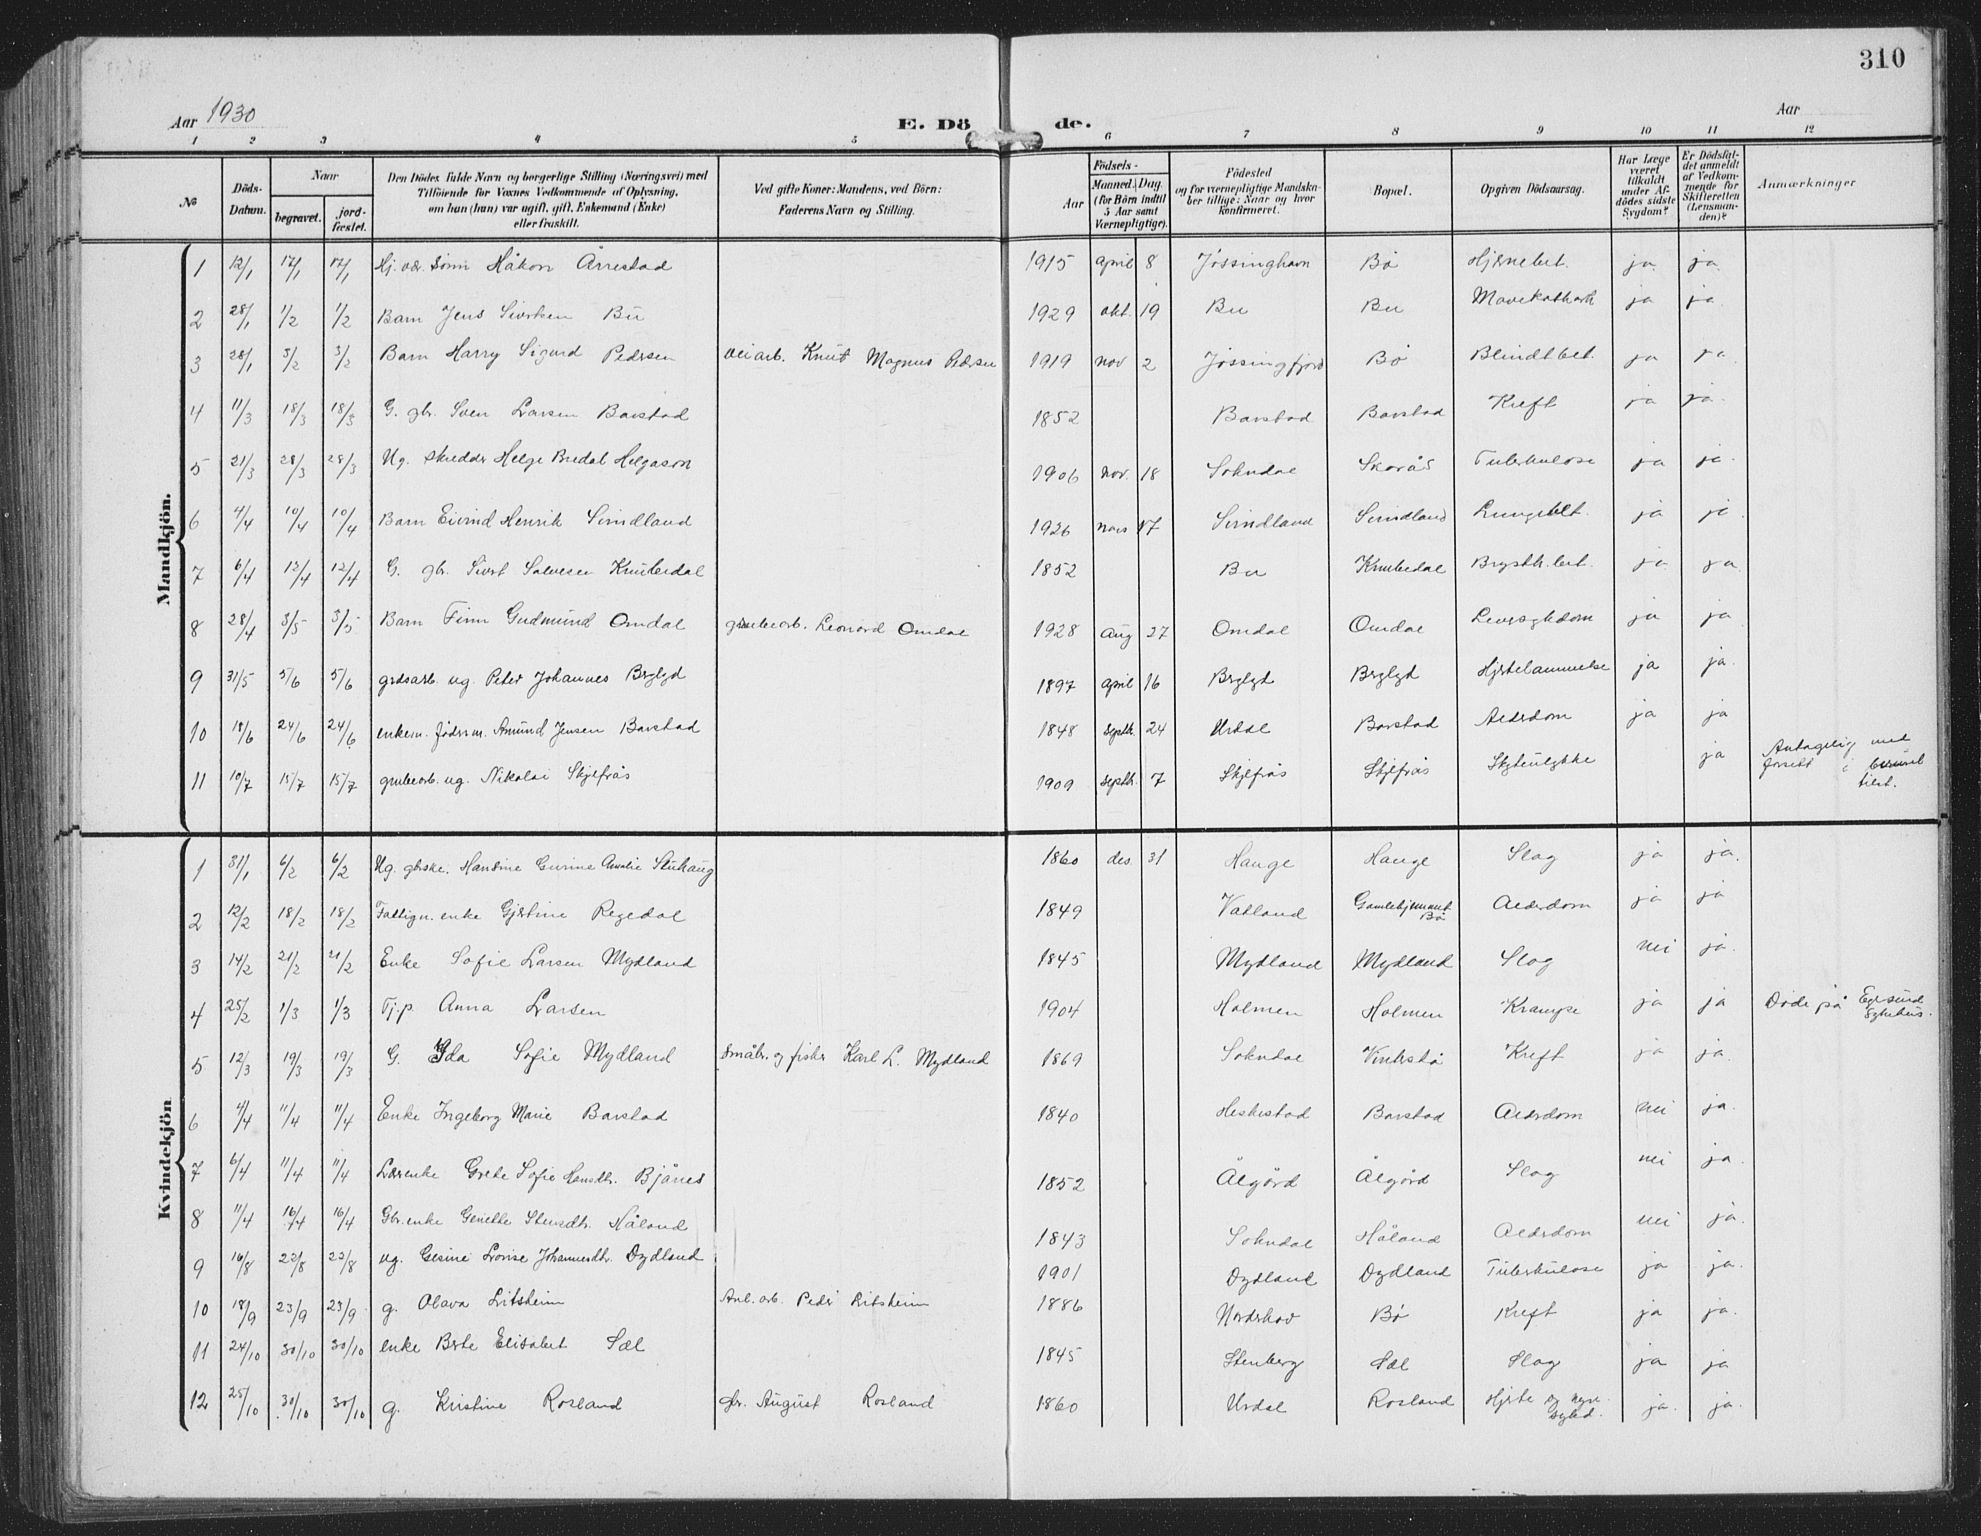 310
Aar 1930
E. Dö de.
Aar
1 2 3 4 5 6 7 8 9 10 11 12
No
Döds-Datum.
Naar
begravet.
jord-fæstet.
Den Dödes fulde Navn og borgerlige Stilling (Næringsvei) med
Tilföiende for Voxnes Vedkommende af Oplysning,
om han (hun) var ugift, gift, Enkemand (Enke)
eller fraskilt.
Ved gifte Koner: Mandens, ved Börn:
Faderens Navn og Stilling.
Födsels-
Aar
Maaned. Dag.
(for Börn indtil
5 Aar samt
Værnepligtige).
Födested
og for værnepligtige Mandska-
ber tillige: Naar og hvor
konfirmeret.
Bopæl.
Opgiven Dödsaarsag.
Har Læge
været
tilkaldt
under Af-
dödes sidste
Sygdom?
Er Dödsfal-
det anmeldt
af Vedkom-
mende for
Skifteretten
(Lensman-
den)?
Anmærkninger
Mandkjön.
1 12/1 17/1 17/1 Hj. vær. sönn Håkon Årrestad 1915 april 8 Jøssinghavn Bø Hjernebet. ja ja
2 28/1 1/2 1/2 Barn Jens Sivertsen Bu 1929 okt. 19 Bu Bu Mavekatharh ja ja
3 28/1 3/2 3/2 Barn Harry Sigurd Pedersen veiarb. Knut Magnus Pedersen 1919 nov 2 Jøssingfjord Bø Blindtbet. ja ja
4 11/3 18/3 18/3 G. gbr. Sven Larsen Barstad 1852 Barstad Barstad Kreft ja ja
5 21/3 28/3 28/3 Ug. skredder Helge Bredal Helgason 1906 nov. 18 Sokndal Skarås Tuberkulose ja ja
6 4/4 10/4 10/4 Barn Eivind Henrik Svindland 1926 mars 17 Svindland Svindland Lungebet. ja ja
7 6/4 12/4 12/4 G. gbr. Sivert Salvesen Knubedal 1852 Bu Knubedal Brysth.bet. ja ja
8 28/4 3/5 3/5 Barn Finn Gudmund Omdal grubearb. Leonard Omdal 1928 aug 27 Omdal Omdal Leversykdom ja ja
9 31/5 5/6 5/6 grdsarb. ug. Peter Johannes Berglyd 1897 april 16 Berglyd Berglyd Hjertelammelse ja ja
10 18/6 24/6 24/6 enkem. føderm. Amund Jensen Barstad 1848 septbr. 24 Urdal Barstad Alderdom ja ja
11 10/7 15/7 15/7 grubearb. ug. Nikolai Skjelfrås 1909 septbr. 7 Skjelfrås Skjelfrås Skyteulykke ja Antagelig med
forsett i
tilst.
Kvindekjön
1 31/1 6/2 6/2 Ug. gbrske. Hansine Gurine Amalie Stuhaug 1860 des. 31 Hauge Hauge Slag ja ja.
2 12/2 18/2 18/2 Fattign. enke Gjertine Regedal 1849 Vatland Gamlehjemmet
Bø Alderdom ja ja
3 14/2 21/2 21/2 Enke Sofie Larsen Mydland 1845 Mydland Mydland Slag nei ja.
4 25/2 1/3 1/3 Tj.p. Anna Larsen 1904 Holmen Holmen Krampe ja ja Døde på Egersund
sykehus.
5 12/3 19/3 19/3 G. Ida Sofie Mydland småbr. og fisker Karl L. Mydland 1869 Sokndal Vinterstø Kreft ja ja.
6 4/4 11/4 11/4 Enke Ingeborg Marie Barstad 1840 Heskestad Barstad Alderdom nei ja.
7 6/4 11/4 11/4 Lærenke Grete Sofie Hansdtr. Bjånes 1852 Ålgård Ålgård Slag nei ja.
8 11/4 16/4 16/4 Gbr.enke Genette Stensdtr. Håland 1843 Sokndal Håland Alderdom nei ja.
9 16/8 22/8 22/8 ug. Gesine Lovise Johannesdtr. Dydland 1901 Dydland Dydland Tuberkulose ja ja.
10 18/9 23/9 23/9 g. Olava Litsheim Anl.arb. Peder Litsheim 1886 Norderhov Bø Kreft ja ja.
11 24/10 30/10 30/10 enke Berte Elisabet Sæl 1845 Stenberg Sæl Slag ja ja
12 25/10 30/10 30/10 g. Kristine Rosland gbr. August Rosland 1860 Urdal Rosland Hjerte og nyre-
sykd. ja. ja.